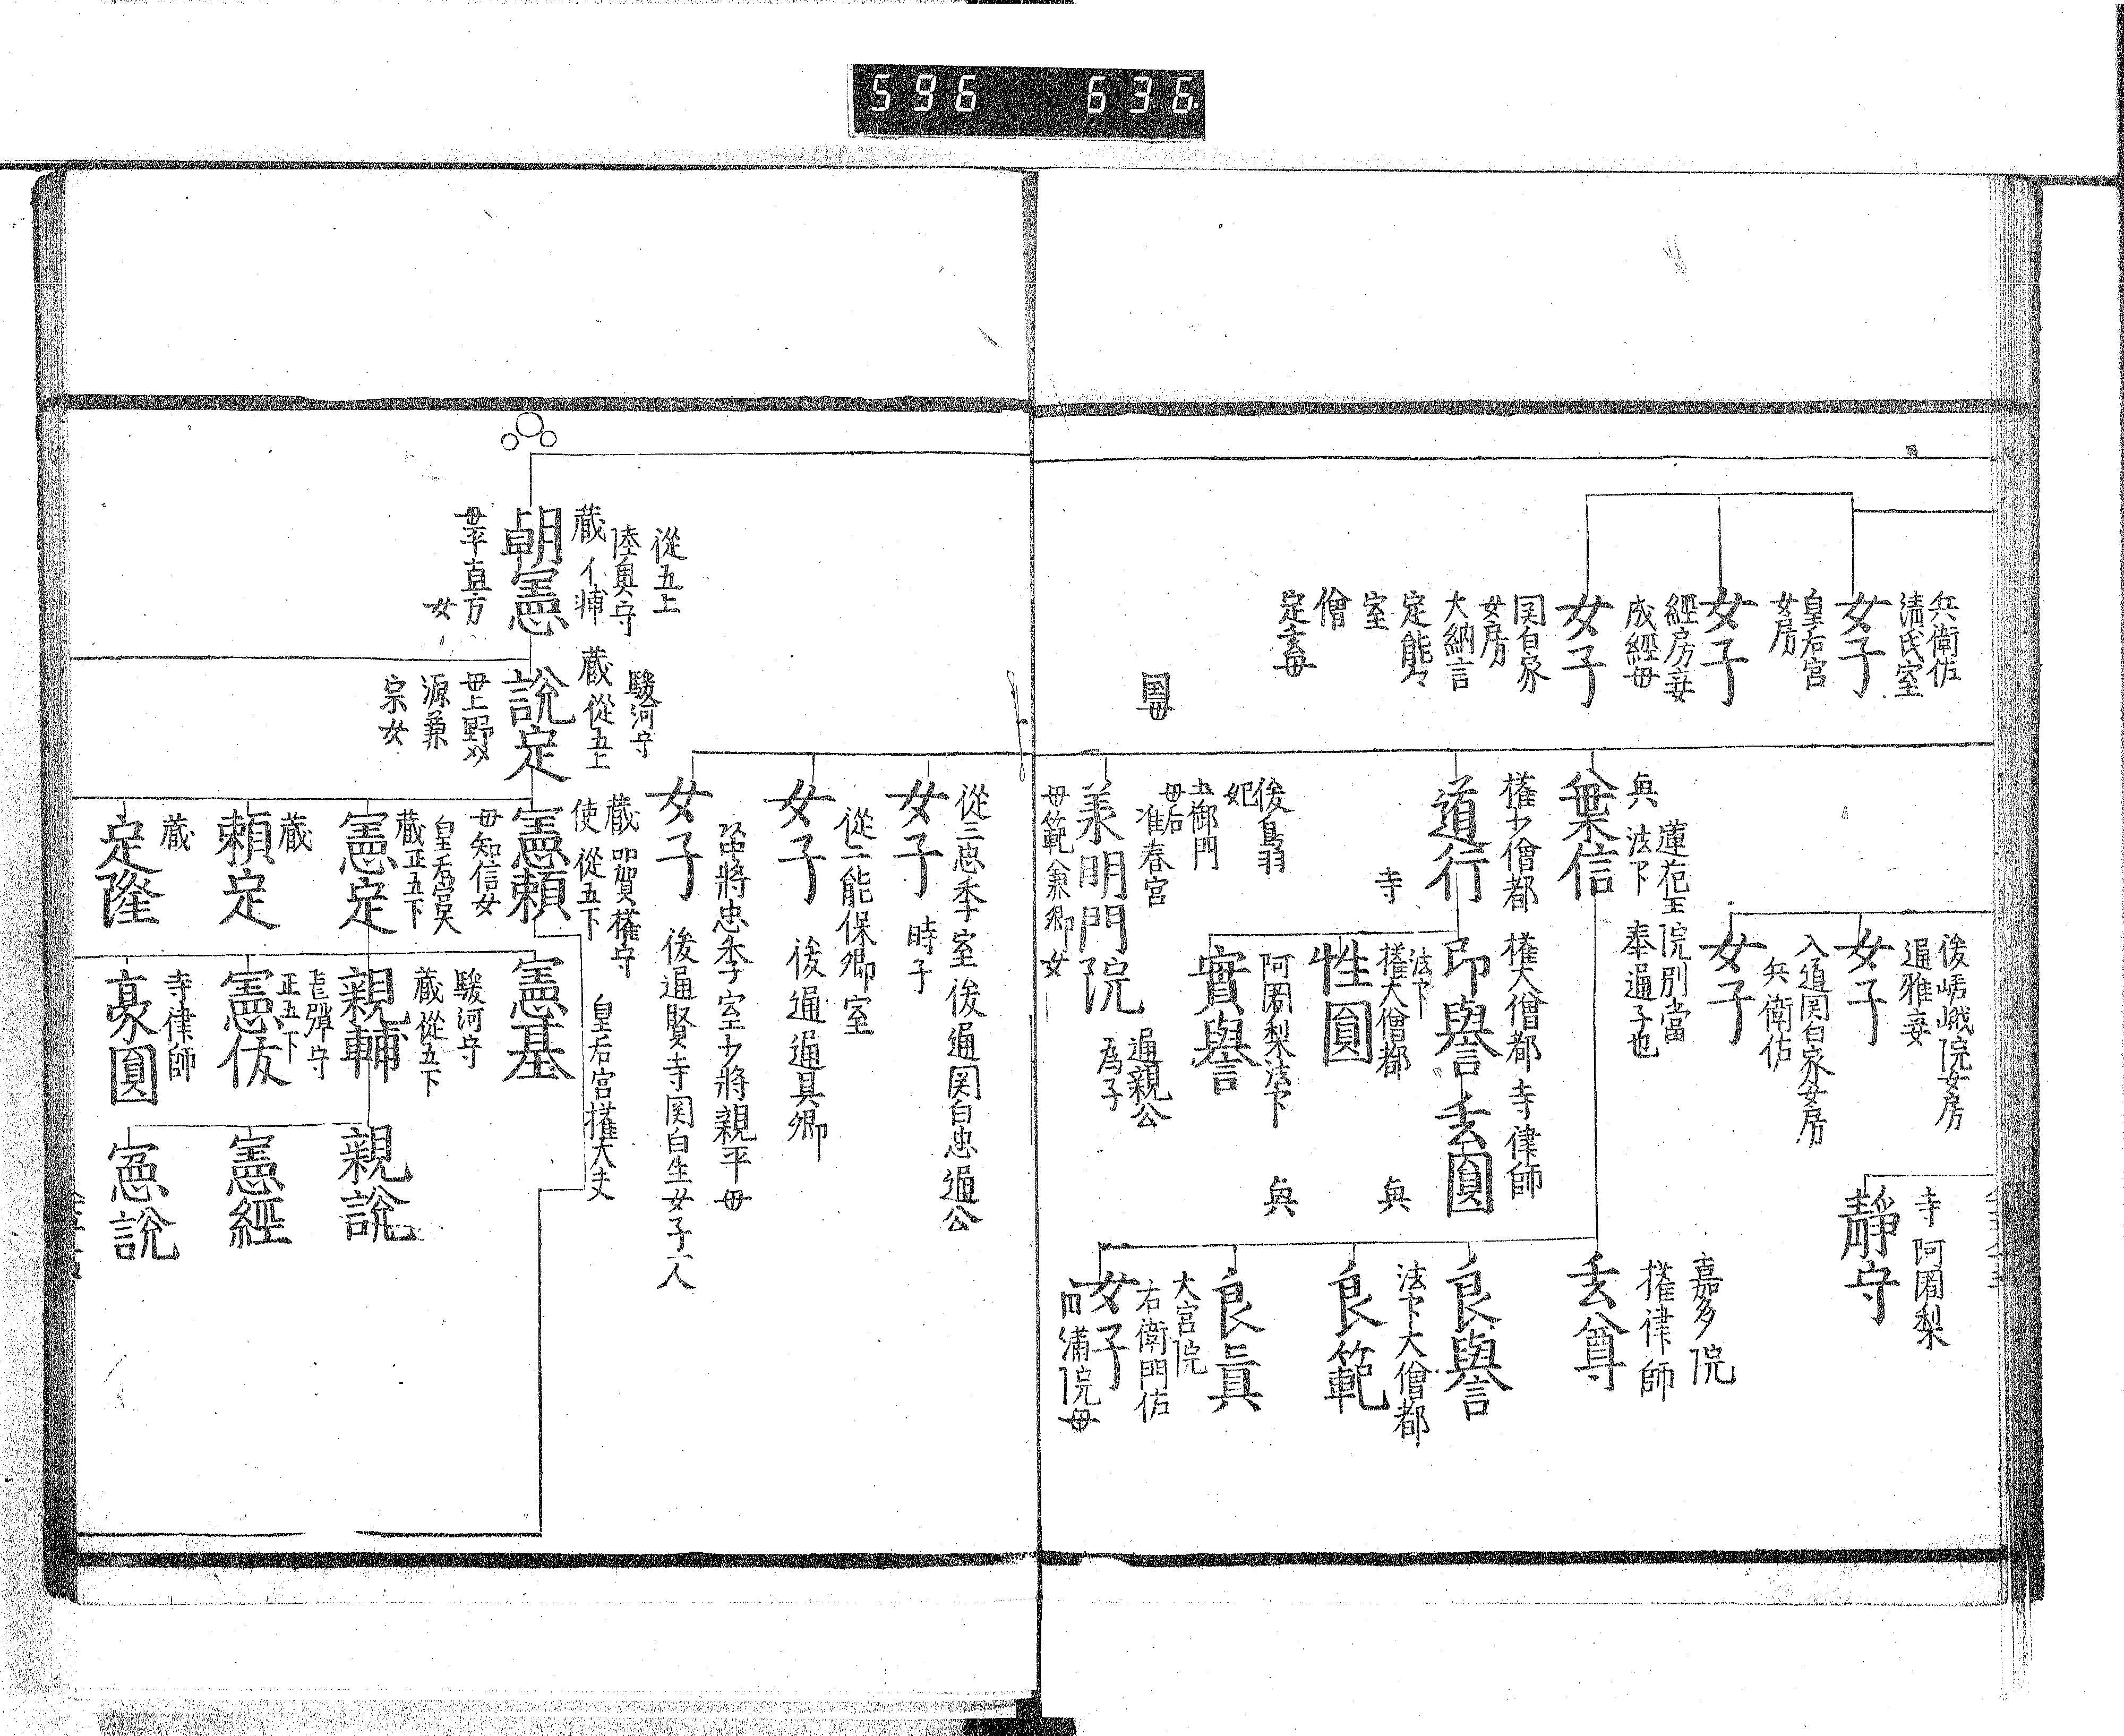 596 636
兵衛佐
清氏室
女子
皇后宮
女房
女子
経房妾
成経母
女子
関白家
女房
大納言
定能々
室
僧
定玄母
国母
後嵯峨院女房
通雅妾
女子
入道関白家女房
兵衛佐
女子
蓮花王院別當
奉通子也
法下
兵
葉信
権少僧都
道行
寺
後鳥羽
妃
土御門
母后
准春宮
羕明門院
母範兼卿女
通親公
為子
寺律師
権大僧都
印譽
玄圓
法下
権大僧都
性圓
阿闍梨法下
實譽
寺阿闍梨
靜守
嘉多院
権律師
玄尊
良譽
法下大僧都
良範
良眞
大宮院
右衛門佐
女子
從三忠季室後通関白忠通公
女子
時子
從二能保卿室
女子
後通通具卿
中将忠季室少将親平母
女子
後通賢寺関白生女子一人
從五上
陸奥守
蔵
朝憲
母平直方
女
駿河守
蔵從五上
説定
母上野
源兼
宗女
賀権守
蔵
使從五下
憲頼
母知信女
皇后宮
蔵正五下
憲定
蔵
頼定
蔵
定隆
皇后宮権大夫
憲基
駿河守
蔵從五下
親輔
正五下
憲
寺律師
豪圓
親説
憲經
憲説